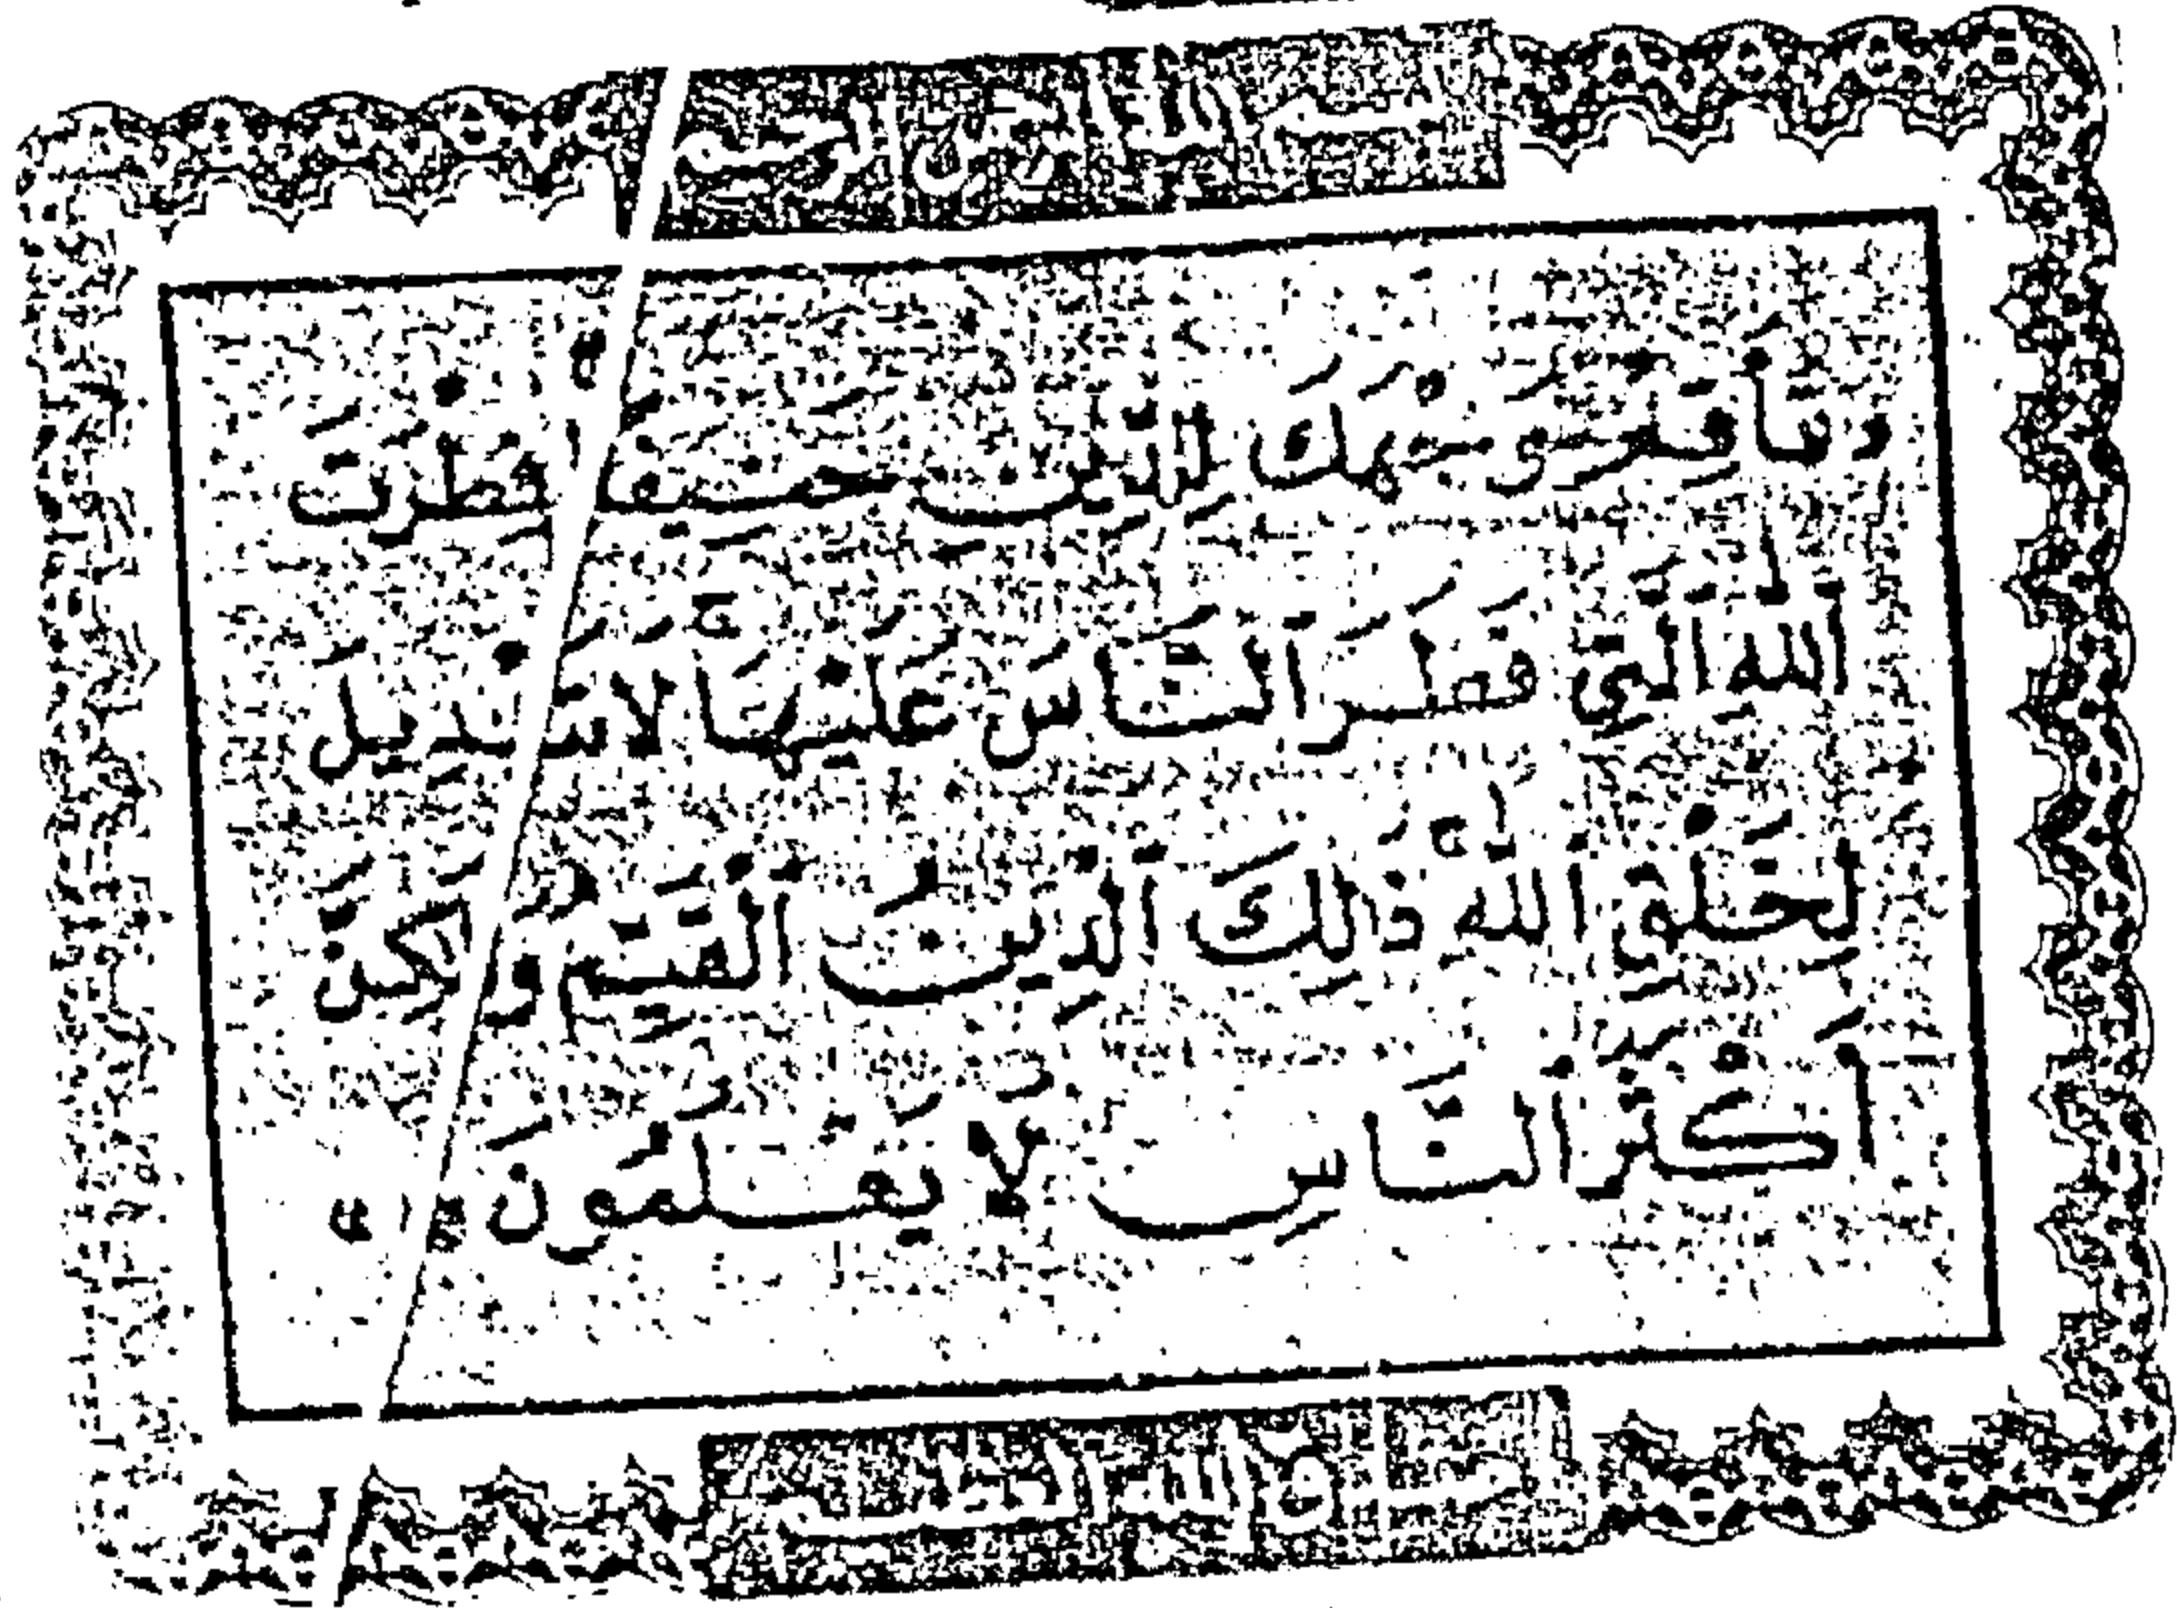 بسم الله الرحمن الرحيم
« فَأَقِمْ وَجْهَكَ لِلدِّينِ حَنِيفًا فِطْرَتَ
ٱللَّهِ ٱلَّتِي فَطَرَ ٱلنَّاسَ عَلَيْهَا ۚ لَا تَبْدِيلَ
لِخَلْقِ ٱللَّهِ ۚ ذَٰلِكَ ٱلدِّينُ ٱلْقَيِّمُ وَلَٰكِنَّ
أَكْثَرَ ٱلنَّاسِ لَا يَعْلَمُونَ »
صدق الله العظيم